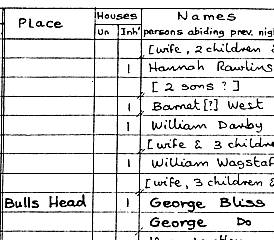 Place Houses Names
Un Inh' persons abiding prev. nig
[wife, 2 children
1 Hannah Rawlins
[ 2 sons ? ]
1 Barnet [?] West
1 William Danby
[wife & 3 childre
1 William Wagstaf
[wife, 3 children &
Bulls Head 1 George Bliss
George Do